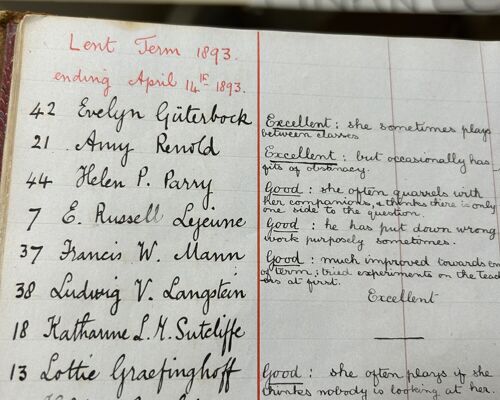 Lent Term 1893.
ending April 14th 1893.
42 Evelyn Güterbock
Excellent: she sometimes plays
between classes
21 Amy Renold
Excellent: but occasionally has
fits of obstinacy.
44 Helen P. Parry
Good: she often quarrels with
her companions, & thinks there is only
one side to the question.
7 E. Russell Lejeune
Good: he has put down wrong
work purposely sometimes.
37 Francis W. Mann
Good: much improved towards en
of term; tried experiments on the teach
ers at first.
38 Ludwig V. Langstein
Excellent
18 Katharine L. M. Sutcliffe
13 Lottie Graefinghoff
Good: she often plays if she
thinks nobody is looking at her.